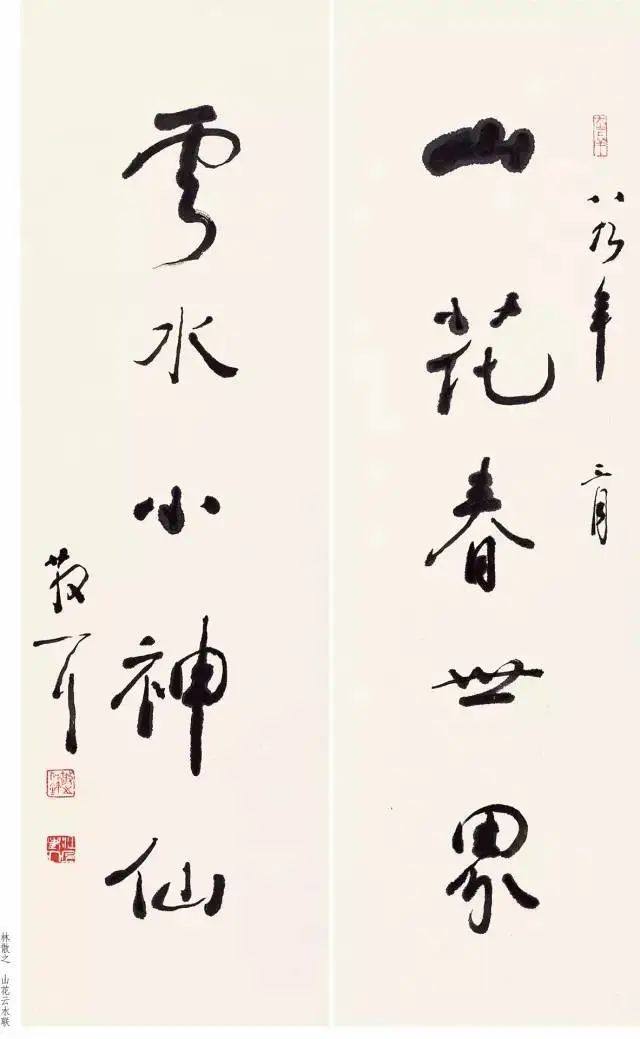 八九年 三月
山花春世界
雲水小神仙
散耳
林散之 山花云水联